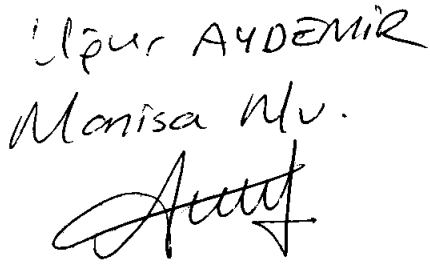 Uğur AYDEMİR
Manisa Mv.